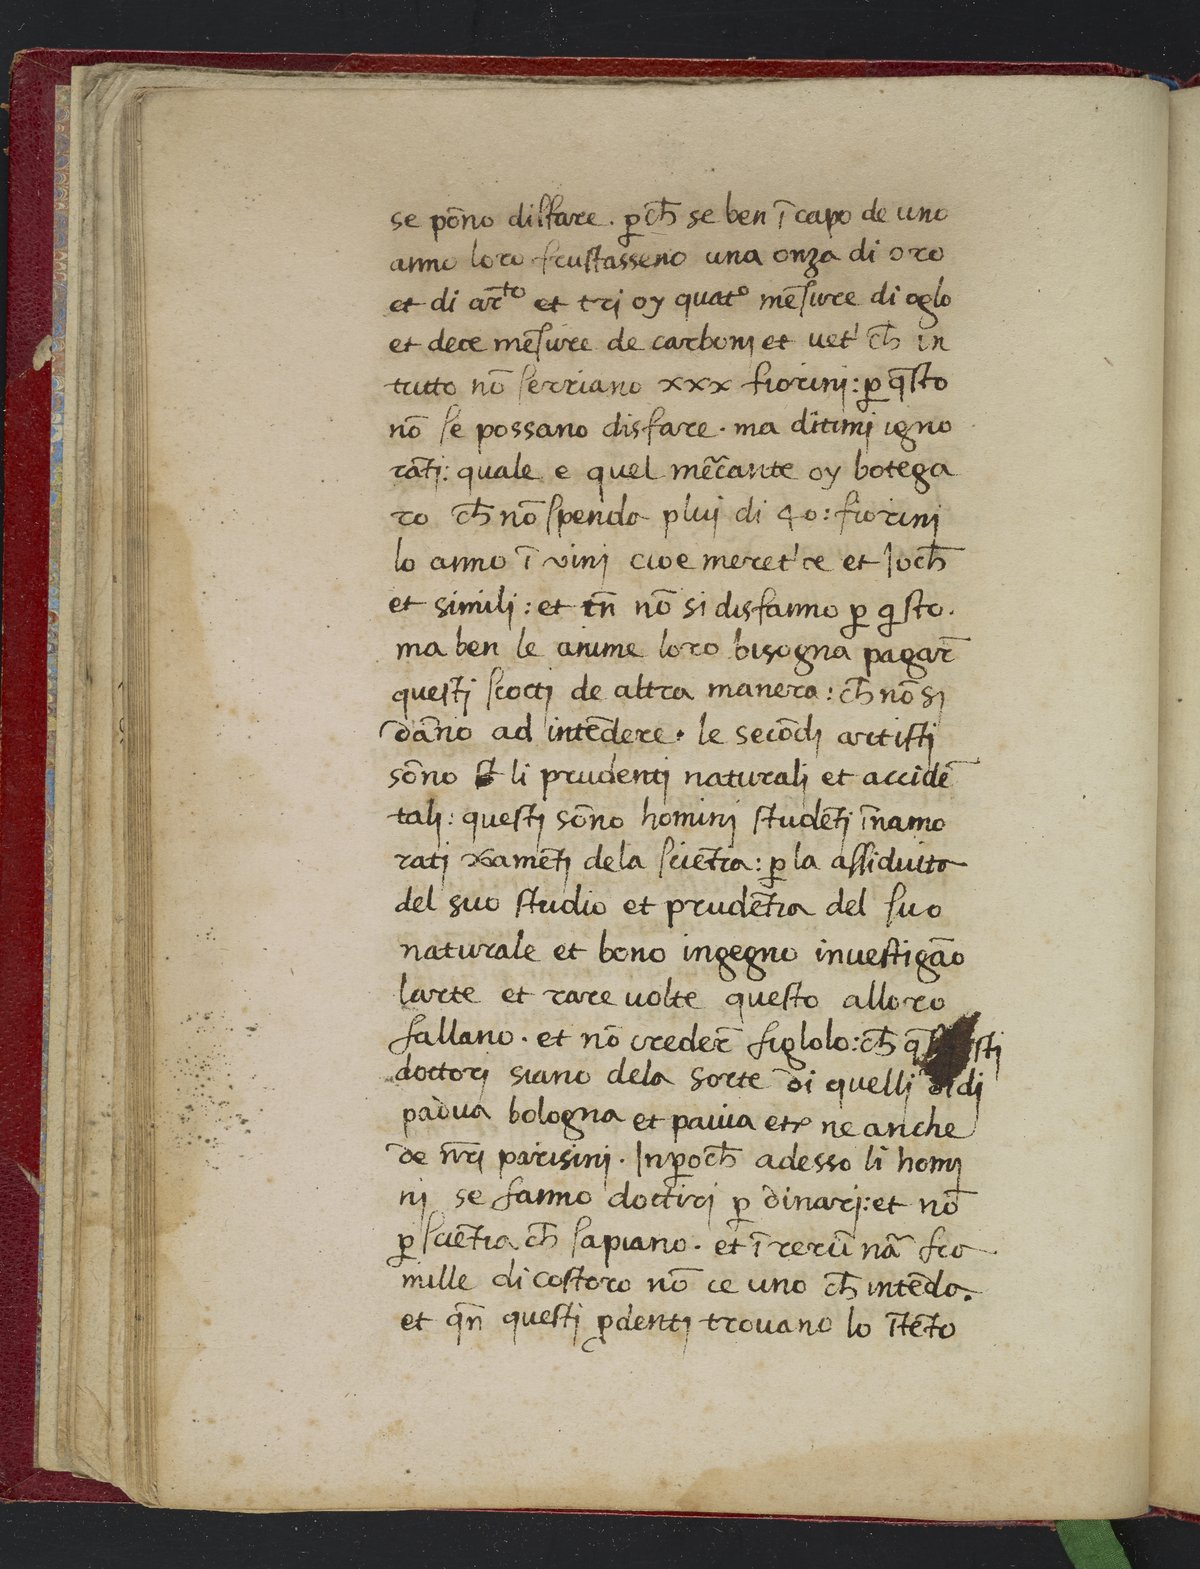 se põno disfare · ꝑch̄ se ben ĩ capo de uno
anno loro frustasseno una onza di oro
et di ar̃ᵗᵒ et trj oy quatᵒ mẽsure di oglo
et dece mẽsure de carbonj et uet' ch̄ in
tutto nõ serriano xxx fiorinj: ꝑ q̃sto
nõ se possano disfare · ma ditimj igno
rãtj: quale e quel mer̃cante oy botega
ro ch̄ nõ spenda pluj di 40: fiorinj
lo anno ĩ vinj cioe meret'ce et Joch̄
et similj: et tñ nõ si disfanno ꝑ q̃sto.
ma ben le anime loro bisogna pagar̃
questj scottj de altra manera: ch̄ nõ sj
dãno ad intẽdere · le secõdj artistj
sõno li prudentj naturalj et accidẽ
talj: questj sõno hominj studẽtj ĩnamo
ratj amẽtj dela sciẽtia: ꝑ la assiduita
del suo studio et prudẽtia del suo
naturale et bono ingegno inuestigão
larte et rare uolte questo alloro
fallano · et nõ creder̃ figlolo: ch̄ stj
doctorj siano dela sorte di quellj di
padua bologna et pauia etc ne anche
de nr̃j parisinj · Inꝑoch̄ adesso li homj
nj se fanno doctirj ꝑ dinarj: et nõ
ꝑ sciẽtia ch̄ sapiano · et ĩ rerũ nã fra
mille di costoro nõ ce uno ch̄ intẽda.
et qñ questj prdentj trouano lo ĩtẽto